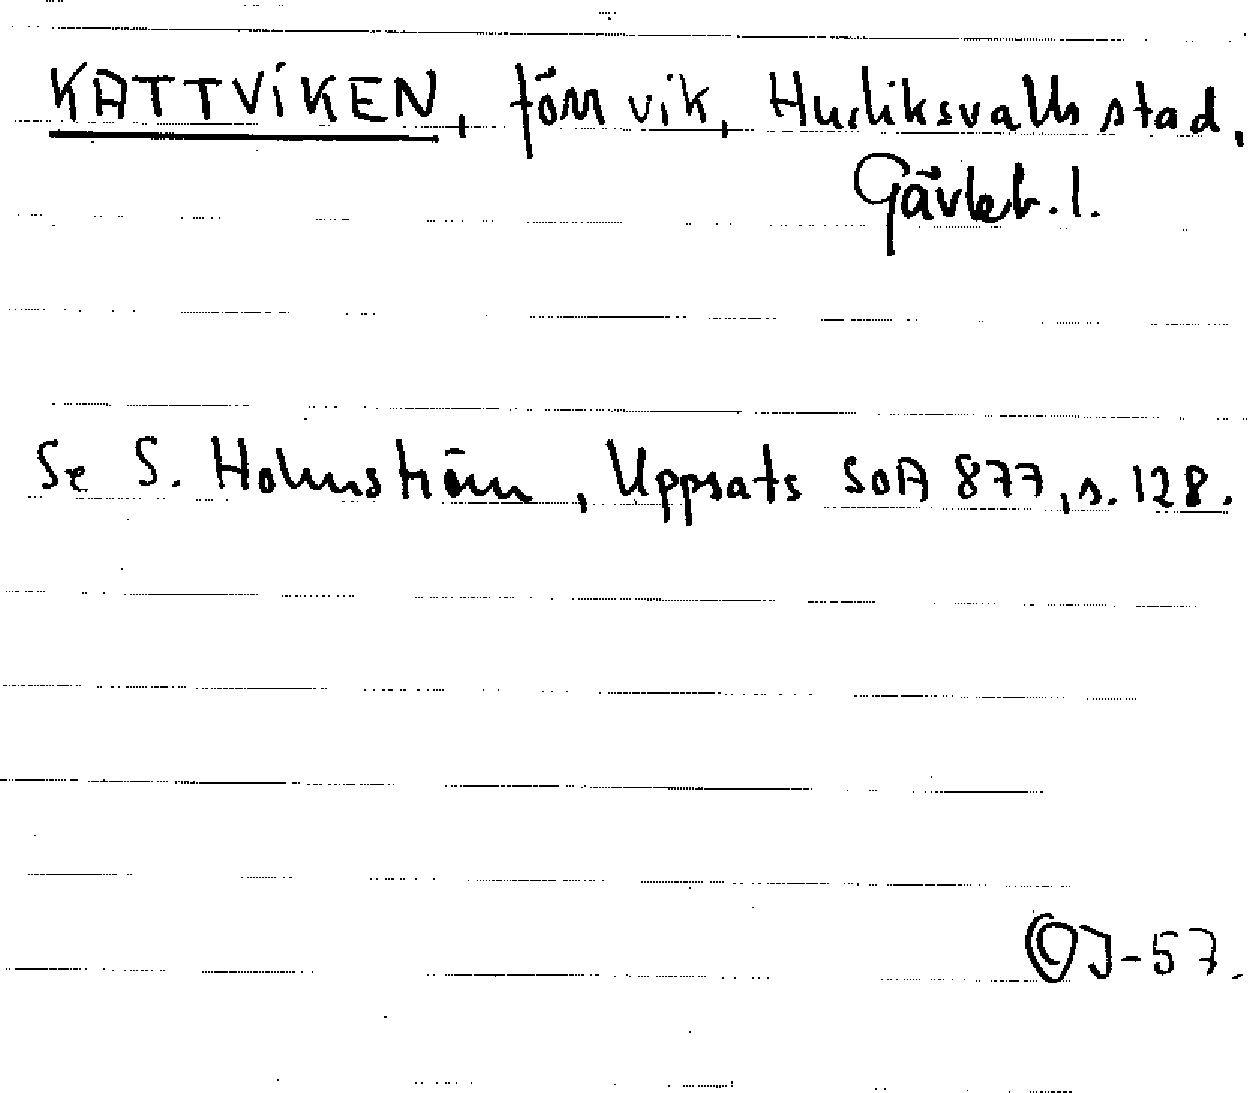 KATTVIKEN, förr vik, Hudiksvalls stad,
Gävleb. l.
Se S. Holmström, Uppsats SOA 877, s. 128.
J-57.